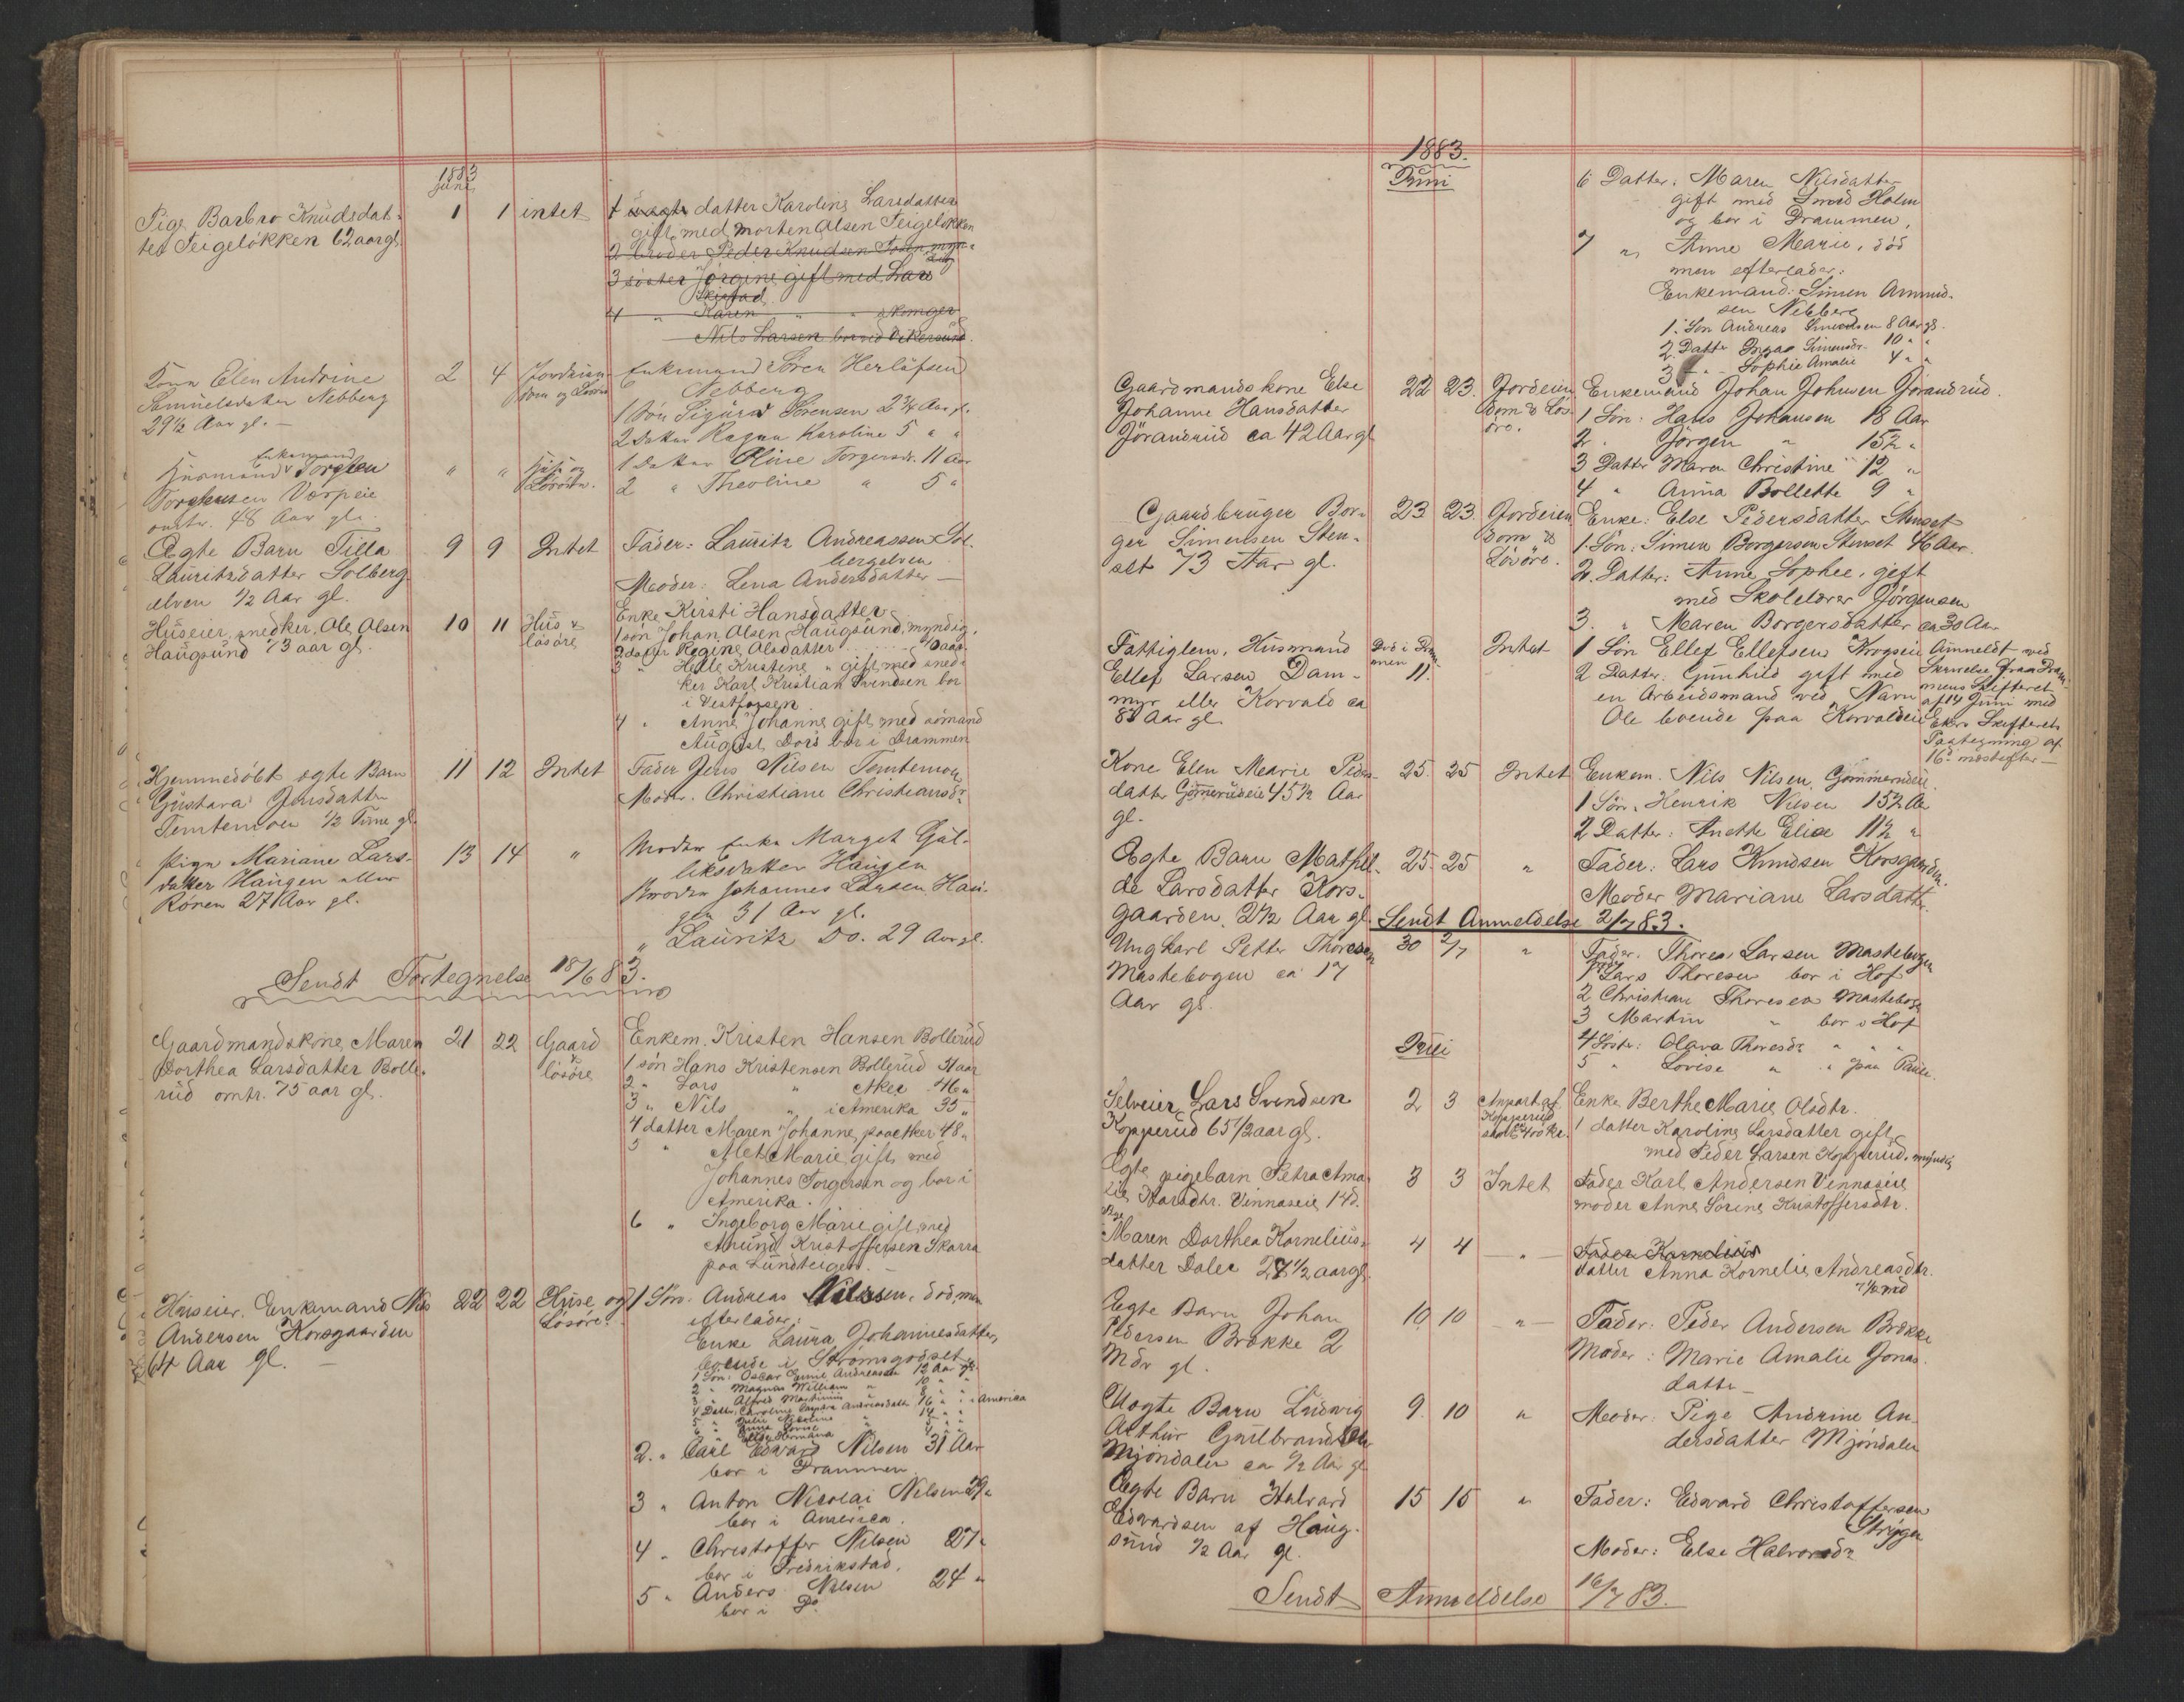 1883
Juni
Pige Barbro Knudsdat- 1 1 intet 1 uægte datter Karoline Larsdatter
ter Teigeløkken 62 aar gl. gift med Morten Olsen Teigeløkken
2 broder Peder Knudsen
3 søster Jørgine gift med Lars
4 " Karen " "
Nils Larsen bor ved Vikersund
Kone Elen Andrine 2 4 Jordeien- Enkemand Søren Herlofsen
Samuelsdatter Nebberg dom og Løsøre Nebberg
29½ Aar gl. — 1 Søn Sigurd Sørensen 2¾ Aar gl.
2 Datter Ragna Karoline 5 " "
Enkemand
Husmand Torsten " " Hus og 1 Datter Oline Torgersdr. 11 Aar
Torstensen Vørpeie Løsøre. 2 " Theoline " 5 "
omtr. 48 Aar gl.
Ægte Barn Tilla 9 9 Intet Fader: Lauritz Andreassen Sol-
Lauritzdatter Solberg- bergelven
elven ½ Aar gl. Moder: Lena Andersdatter —
Huseier, snedker, Ole Olsen 10 11 Hus & Enke Kirsti Hansdatter
Haugsund 73 aar gl. løsøre 1 søn Johan Olsen Haugsund, myndig,
2 datter Regine Olsdatter
3 " Helle Kristine " gift med sned-
ker Karl Kristian Svendsen bor
i Vestfossen
4 " Anne Johanne gift med sømand
August Dors bor i Drammen
Hjemmedøbt ægte Barn 11 12 Intet Fader Jens Nilsen Temtemoen
Gustava Jensdatter Moder. Christiane Christiansdr.
Temtemoen ½ Time gl.
Pige Mariane Lars- 13 14 " Moder Enke Marget Gul-
datter Haugen eller liksdatter Haugen
Rønen 27 Aar gl. Broder Johannes Larsen Hau-
gen 31 Aar gl.
" Lauritz Do. 29 Aar gl.
Sendt Fortegnelse 18/6 83.
Gaardmandskone Maren 21 22 Gaard Enkem. Kristen Hansen Bollerud
Dorthea Larsdatter Bolle- & løsøre 1 søn Hans Kristensen Bollerud 51 aar
rud omtr. 75 aar gl. 2 " Lars " Aker 46 "
3 " Nils " i Amerika 35 "
4 datter Maren Johanne, paa Aker 48 "
5 " Mete Marie gift med
Johannes Torgersen og bor i
Amerika.
6 " Ingeborg Marie gift med
Amund Kristoffersen Skarra
paa Lundteigen. —
Huseier. Enkemand Nils 22 22 Huse og 1 Søn. Andreas Nilssen. død, men
Andersen Korsgaarden Løsøre. efterlader:
64 Aar gl. — Enke Laura Johannesdatter,
boende i Strømsgodset
1 Søn: Oscar Emil Andreassen 12 Aar gl.
2 " Magnus William " 10 " "
3 " Alfred Martinius " 8 " "
4 Datter. Caroline Andreasdatter 16 " " i Amerika
5 " Julie " 14 " "
6 " Anna Lovise 5 " "
" Hermana 4 " "
2. " Carl Edvard Nilsen 31 Aar
bor i Drammen
3 " Anton Nicolai Nilsen 29 "
bor i America.
4 " Christoffer Nilsen 27 "
bor i Fredrikstad.
5 " Anders Nilsen 24 "
bor i Do.
1883.
Juni
6 Datter: Maren Nilsdatter
gift med Smed Holm
og bor i Drammen,
7 " Anne Marie, død
men efterlader:
Enkemand: Simen Amund-
sen Nebberg
1. Søn Andreas Simensen 8 Aar gl.
2. Datter Inga Simensdr. 10 " "
3 " Sophie Amalie 4 " "
Gaardmandskone Else 22 23. Jordeien- Enkemand Johan Johnsen Jørandrud.
Johanne Hansdatter dom & Løs- 1 Søn: Hans Johansen 18 Aar
Jørandrud ca 42 Aar gl øre. 2 " Jørgen " 15½ "
3 Datter Maren Christine 12 "
4 " Anna Bollette 9 "
Gaardbruger Bor- 23 23 Jordeien- Enke: Else Pedersdatter Stenset
ger Simensen Sten- dom & 1. Søn: Simen Borgersen Stenset 46 Aar.
set 73 Aar gl. Løsøre. 2. Datter: Anne Sophie, gift
med Skolelærer Jørgensen
3. " Maren Borgersdatter ca 30 Aar
Fattiglem, Husmand Død i Dram- Intet 1 Søn Ellef Ellefsen Krogseie Anmeldt ved
Ellef Larsen Dam- men 11. 2 Datter. Gunhild gift med Skrivelse fra Dram-
myr eller Korvald ca en Arbeidsmand ved Navn mens Skifteret
83 Aar gl. Ole boende paa Korvaldeie af 14 Juni med
Ekers Skifterets
Paategning af
16. næstefter —
Kone Elen Marie Peders- 25. 25 Intet Enkem. Nils Nilsen, Gommerudeie.
datter Gommerudeie 45½ Aar 1 Søn, Henrik Nilsen 15½ Aar
gl. 2 Datter: Anette Elise 11½ "
Ægte Barn Mathil- 25. 25 " Fader: Lars Knudsen Korsgaarden.
de Larsdatter Kors- Moder Mariane Larsdatter.
gaarden. 2½ Aar gl. Sendt Anmeldelse 2/7 83.
Ungkarl Petter Thoresen 30 2/7 " Fader. Thores Larsen Mastebogen
Mastebogen ca 17 1 Lars Thoresen bor i Hof
Aar gl. 2 Christian Thoresen Mastebogen
3 Martin " bor i Hof
4 Søster: Olava Thoresdr. " " "
5 " Lovise " " paa
Juli
Selveier Lars Svendsen 2 3 Anpart af Enke Berthe Marie Olsdtr.
Kopperud 65½ aar gl. Kopperud 1 datter Karoline Larsdatter gift
400 Kr. med Peder Larsen Kopperud. myndig
Ægte pigebarn Petra Ama- 3 3 Intet Fader Karl Andersen Vinnaseie
lie Karlsdtr. Vinnaseie 14 d. moder Anne Sørine Kristoffersdtr.
Pige
Maren Dorthea Kornelius- 4 4 — " — Fader Kornelius
datter Dalee 27½ aar gl. datter Anna Kornelie Andreasdtr.
7½ md
Ægte Barn Johan 10. 10 — " — Fader: Peder Andersen Brække
Pedersen Brække 2 Moder: Marie Amalie Jonas-
Mdr gl. datter —
Uægte Barn Ludvig 9. 10 " Moder: Pige Andrine An-
Arthur Gulbrandsen dersdatter Mjøndalen
Mjøndalen ca ½ Aar gl
Ægte Barn Halvard 15 15 " Fader: Edvard Christoffersen
Edvardsen af Haug- Stryger
sund ½ Aar gl. Moder: Else Halvorsdr
Sendt Anmeldelse 16/7 83.